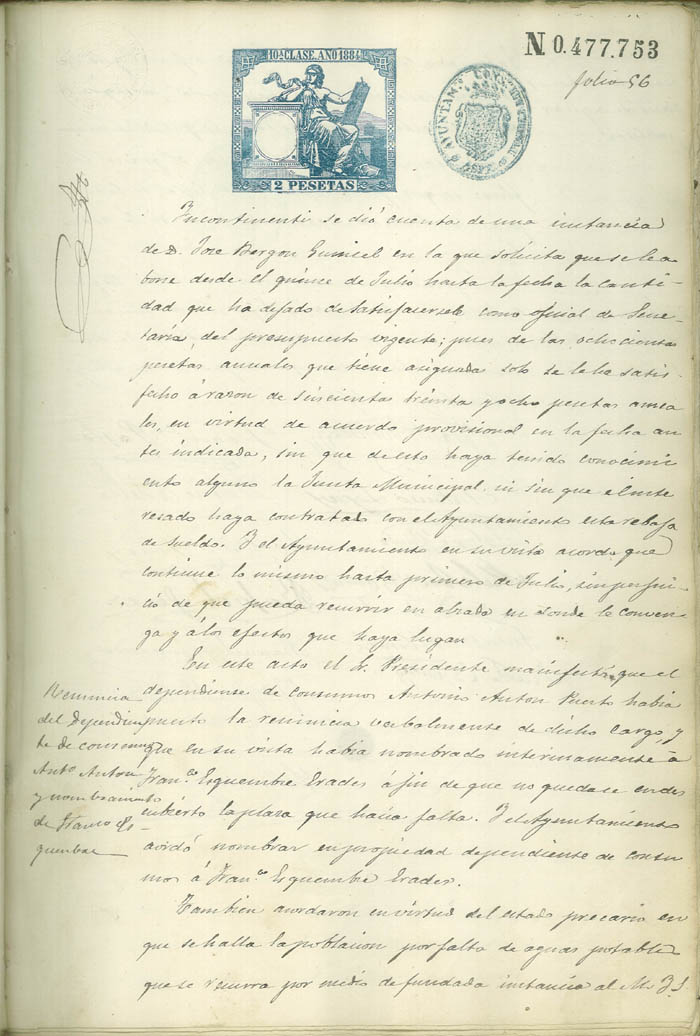 10ª CLASE. AÑO 1884
2 PESETAS
N. 0.477.753
folio 56
AYUNTAM.º CONSTITUCIONAL D
Incontinenti se dió cuenta de una instancia
de D. Jose Bergon Gumiel en la que solicita que se le a-
bone desde el quince de Julio hasta la fecha la canti-
dad que ha dejado de satisfacersele como oficial de Secre-
tarias, del presupuesto vigente; pues de las ochocientas
pesetas anuales que tiene asignadas solo se le ha satis-
fecho á razon de seiscientas treinta y ocho pesetas anua-
les, en virtud de acuerdo provisional en la fecha an-
tes indicada, sin que de esto haya tenido conocimi-
ento alguno la Junta Municipal ni sin que el inte-
resado haya contratado con el Ayuntamiento esta rebaja
de sueldo. Y el Ayuntamiento en su vista acordó que
continue lo mismo hasta primero de Julio, sin perjui-
cio de que pueda recurrir en alzada en donde le conven-
ga y á los efectos que haya lugar.
En este acto el Sr. Presidente manifestó que el
dependiense de consumos Antonio Anton Puerto habia
puesto la renuncia verbalmente de dicho cargo, y
que en su vista habia nombrado interinamente á
Fran.co Esquembre Erades á fin de que no quedase en des-
cubierto la plaza que hacia falta. Y el Ayuntamiento
acordó nombrar en propiedad dependiente de consu-
mos á Fran.co Esquembre Erades.
Tambien acordaron en virtud del estado precario en
que se halla la poblacion por falta de aguas potables
que se recurra por medio de fundada instancia al M. Y. S.
Renuncia
del dependien-
te de consumos
Ant.º Anton
y nombramiento
de Franco Es-
quembre